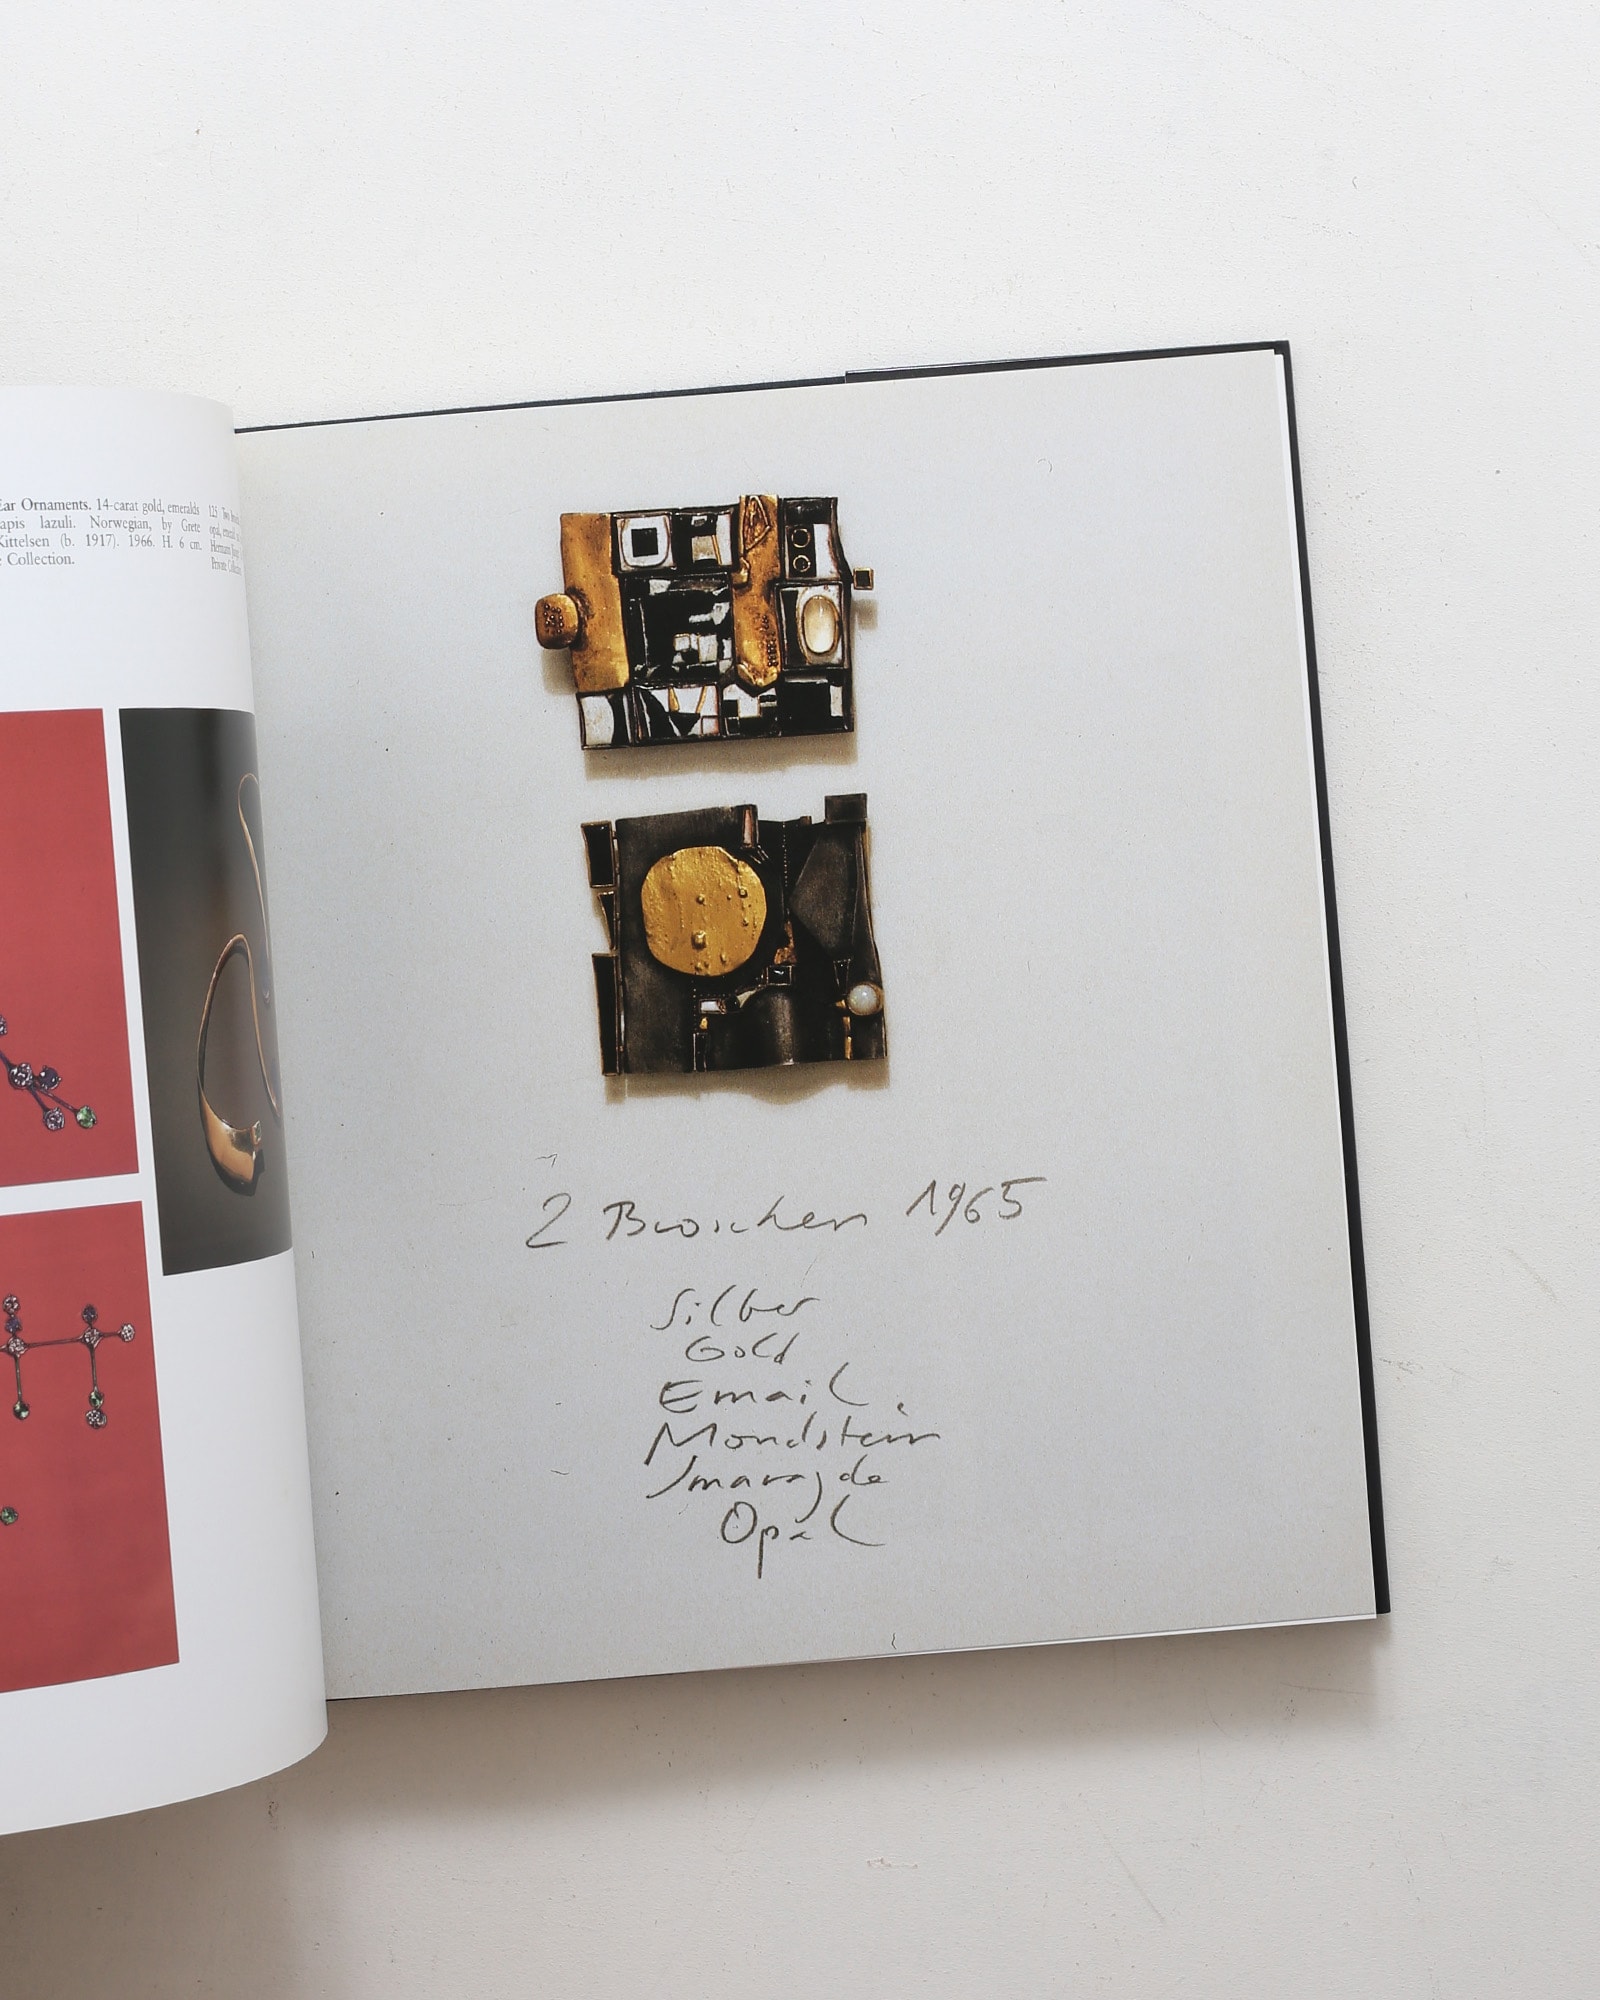 Ear Ornaments. 14-carat gold, emeralds
lapis lazuli. Norwegian, by Grete
Kittelsen (b. 1917). 1966. H. 6 cm.
Collection.
125 Two
opal,
Hermann
Private
2 Broschen 1965
Silber
Gold
Email.
Mondstein
Smaragde
Opal